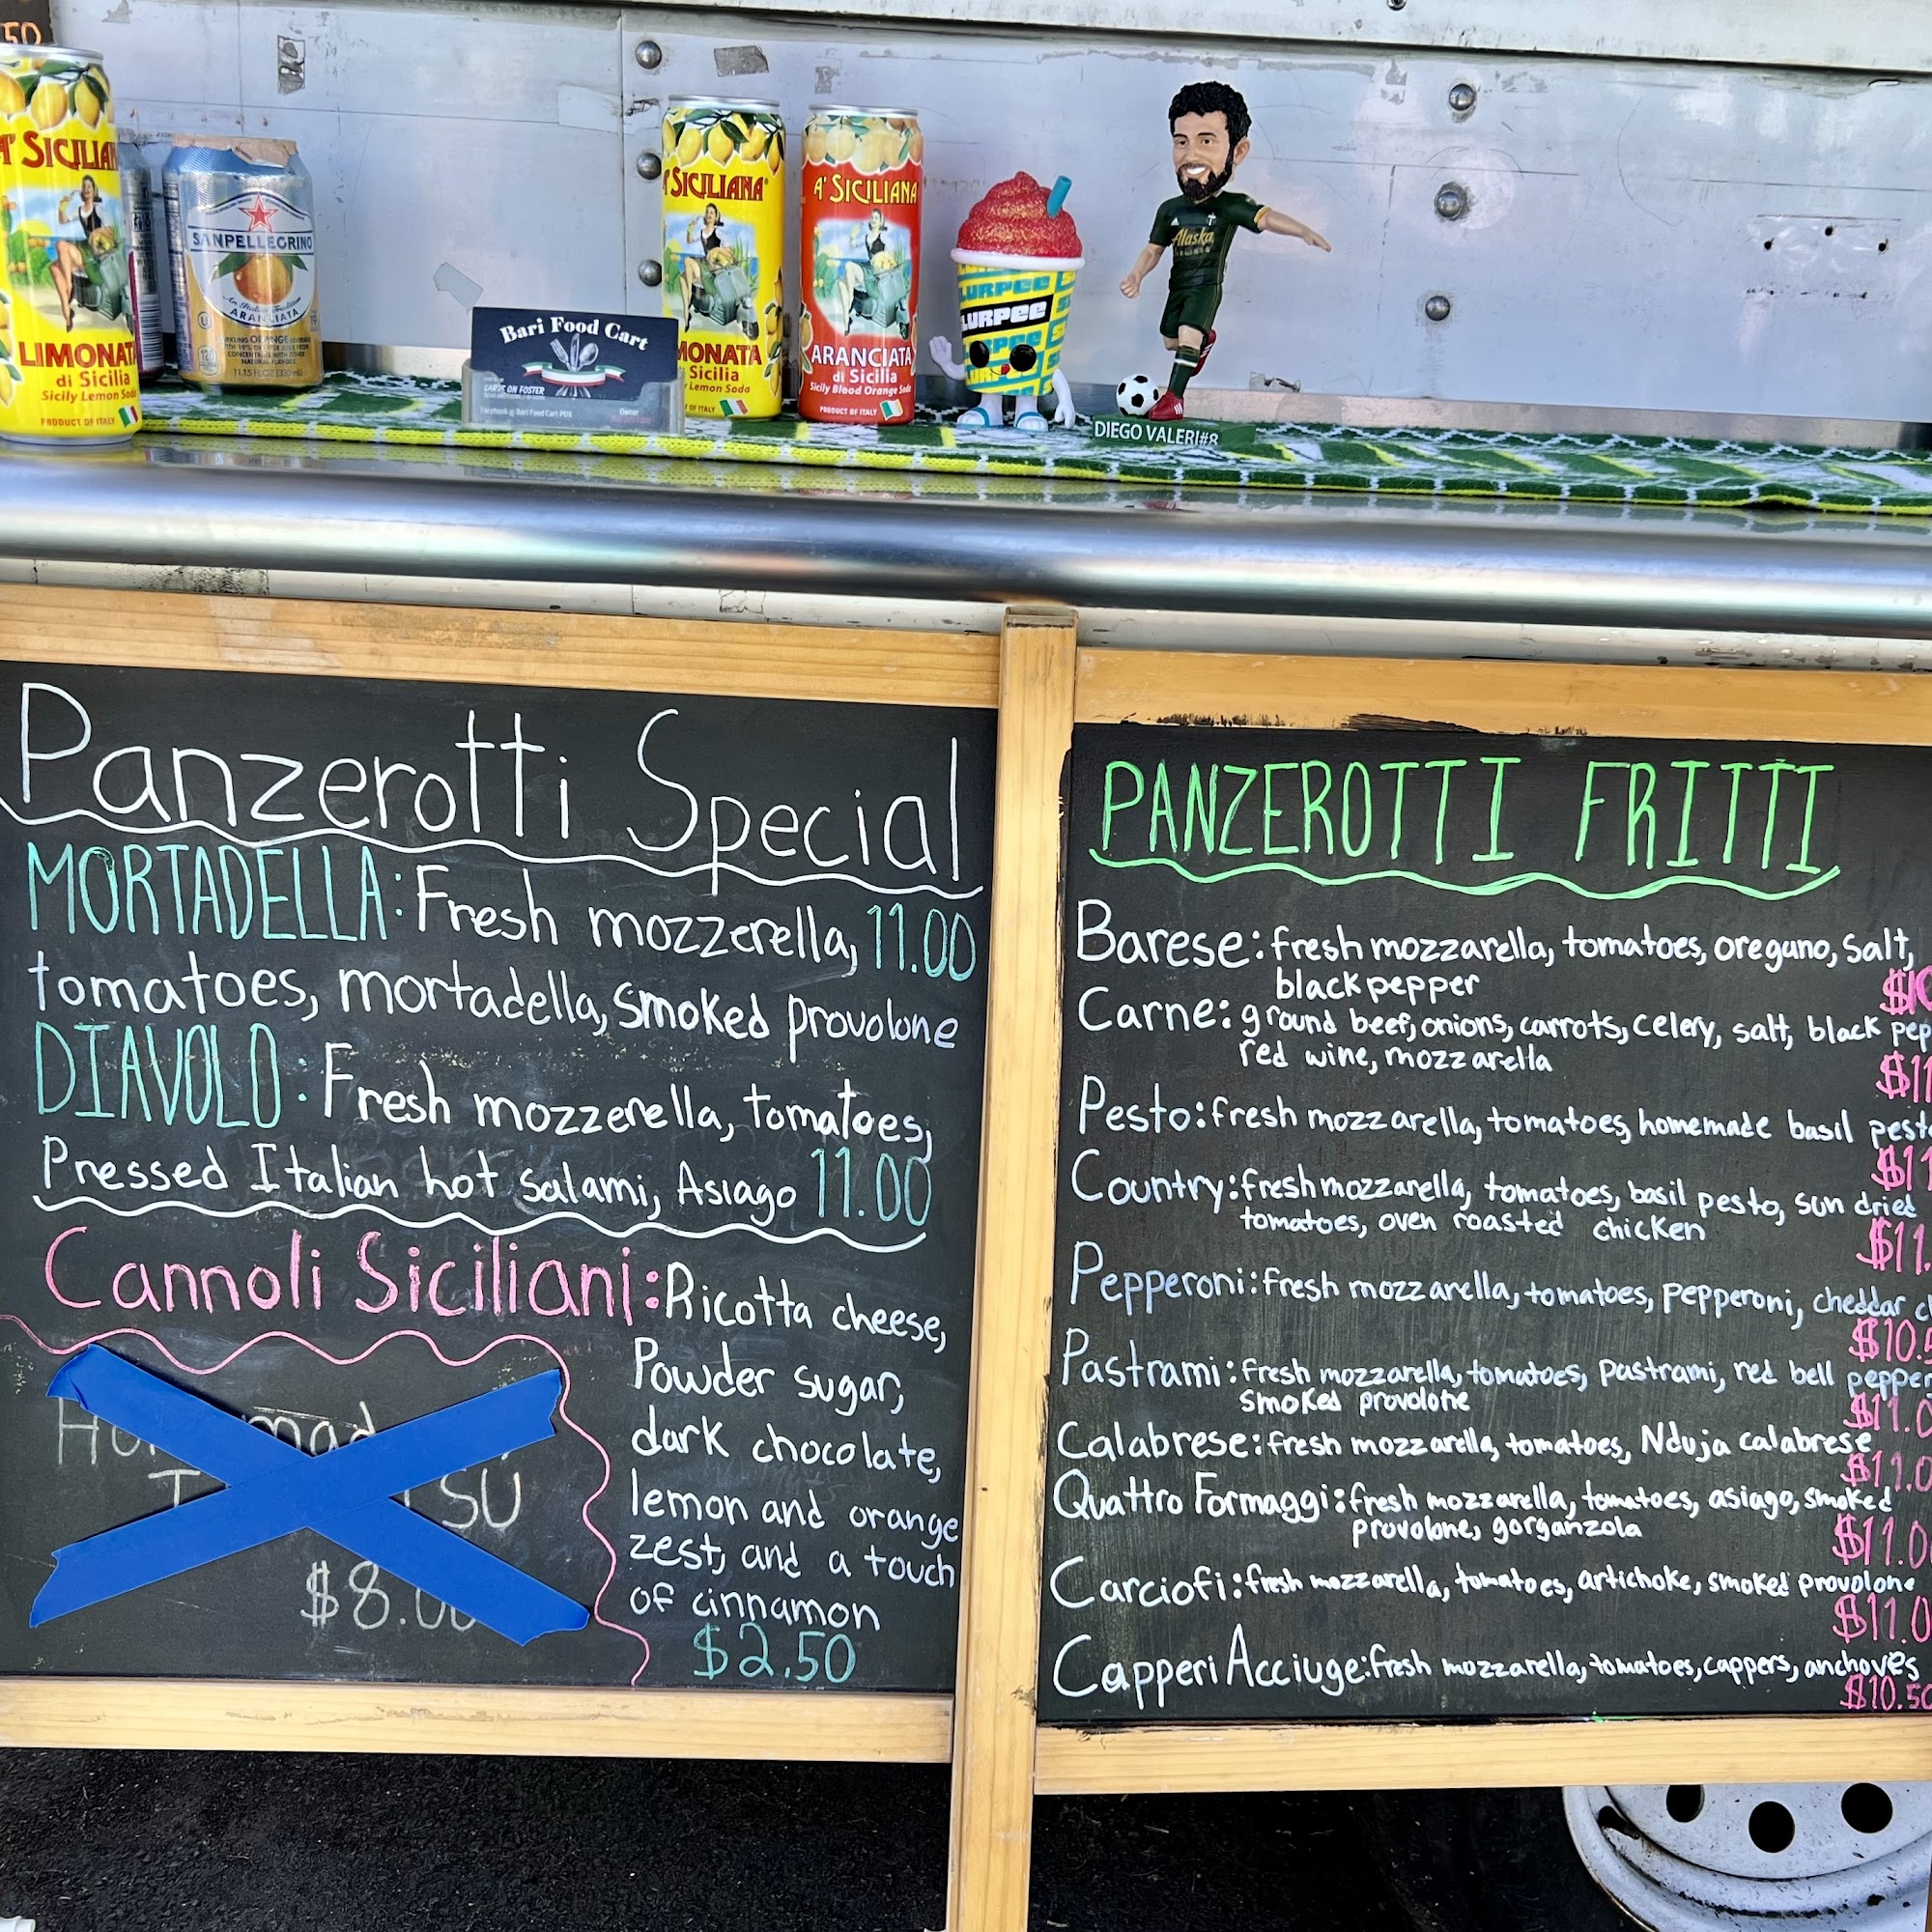 50
A' SICILIANA
LIMONATA
di Sicilia
Sicily Lemon Soda
PRODUCT OF ITALY
SANPELLEGRINO
ARANCIATA
11.15 FL OZ (330 mL)
Bari Food Cart
CARTS ON FOSTER
Facebook @ Bari Food Cart PDX
Owner
SICILIANA
MONATA
Sicilia
Lemon Soda
OF ITALY
A' SICILIANA
ARANCIATA
di Sicilia
Sicily Blood Orange Soda
PRODUCT OF ITALY
LURPEE
LURPEE
Alaska
DIEGO VALERI#8
Panzerotti Special
MORTADELLA: Fresh mozzerella, 11.00
tomatoes, mortadella, smoked provolone
DIAVOLO: Fresh mozzerella, tomatoes,
Pressed Italian hot salami, Asiago 11.00
Cannoli Siciliani: Ricotta cheese,
Powder sugar,
dark chocolate,
lemon and orange
zest, and a touch
of cinnamon
$2.50
SU
$8.00
PANZEROTTI FRITTI
Barese: fresh mozzarella, tomatoes, oregano, salt,
black pepper
Carne: ground beef, onions, carrots, celery, salt, black pep
red wine, mozzarella
$11
Pesto: fresh mozzarella, tomatoes, homemade basil pesto
$11
Country: fresh mozzarella, tomatoes, basil pesto, sun dried
tomatoes, oven roasted chicken
$11.
Pepperoni: fresh mozzarella, tomatoes, pepperoni, cheddar c
$10.5
Pastrami: fresh mozzarella, tomatoes, pastrami, red bell pepper
smoked provolone
$11.0
Calabrese: fresh mozzarella, tomatoes, Nduja calabrese
$11.0
Quattro Formaggi: fresh mozzarella, tomatoes, asiago, smoked
provolone, gorganzola
$11.0
Carciofi: fresh mozzarella, tomatoes, artichoke, smoked provolone
$11.0
Capperi Acciuge: fresh mozzarella, tomatoes, cappers, anchoves
$10.50